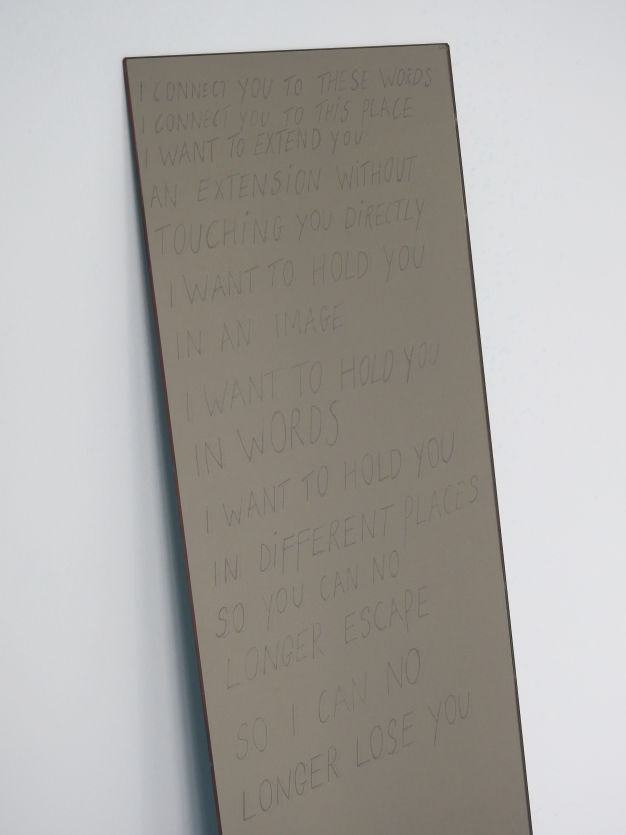 I CONNECT YOU TO THESE WORDS
I CONNECT YOU TO THIS PLACE
I WANT TO EXTEND YOU
AN EXTENSION WITHOUT
TOUCHING YOU DIRECTLY
I WANT TO HOLD YOU
IN AN IMAGE
I WANT TO HOLD YOU
IN WORDS
I WANT TO HOLD YOU
IN DIFFERENT PLACES
SO YOU CAN NO
LONGER ESCAPE
SO I CAN NO
LONGER LOSE YOU